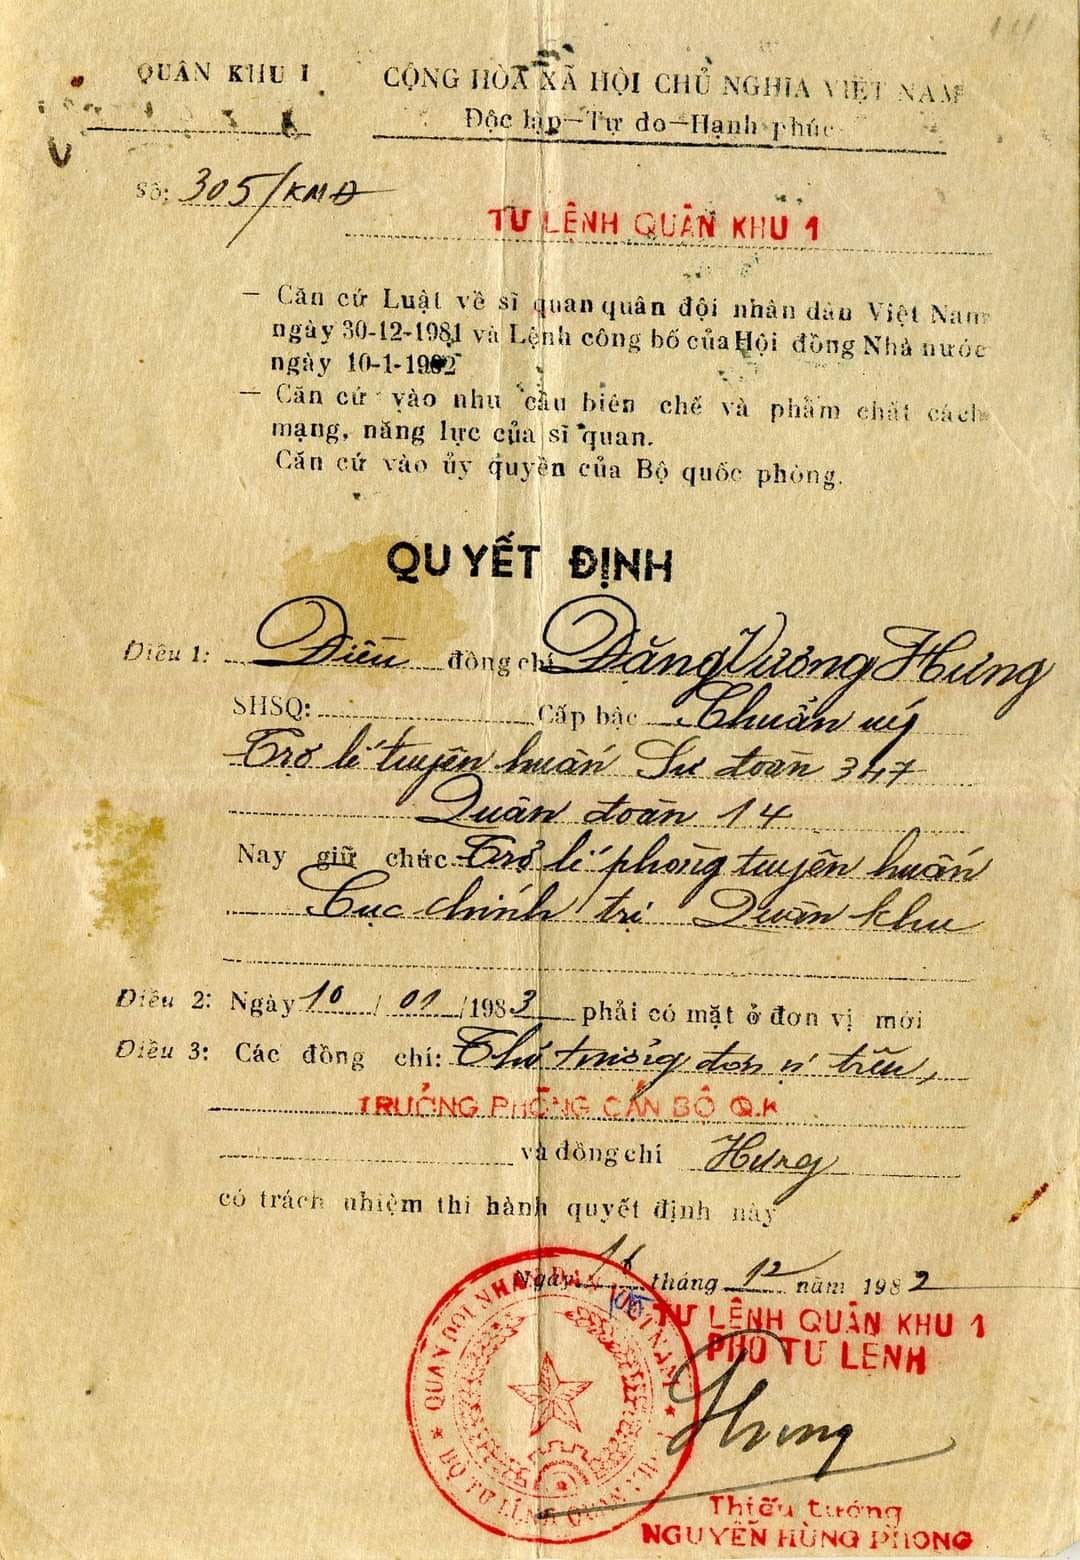 QUÂN KHU 1
CỘNG HÒA XÃ HỘI CHỦ NGHĨA VIỆT NAM
Độc lập—Tự do—Hạnh phúc
Số: 305/KMĐ
TƯ LỆNH QUÂN KHU 1
— Căn cứ Luật về sĩ quan quân đội nhân dân Việt Nam
ngày 30-12-1981 và Lệnh công bố của Hội đồng Nhà nước
ngày 10-1-1982
— Căn cứ vào nhu cầu biên chế và phẩm chất cách
mạng, năng lực của sĩ quan.
Căn cứ vào ủy quyền của Bộ quốc phòng.
QUYẾT ĐỊNH
Điều 1: Điều đồng chí Đặng Vương Hưng
SHSQ: Cấp bậc Chuẩn uý
Trợ lí tuyên huấn Sư đoàn 347
Quân đoàn 14
Nay giữ chức Trợ lí phòng tuyên huấn
Cục chính trị Quân khu
Điều 2: Ngày 10/01/1983 phải có mặt ở đơn vị mới
Điều 3: Các đồng chí: Thủ trưởng đơn vị trên,
TRƯỞNG PHÒNG CÁN BỘ Q.K
và đồng chí Hưng
có trách nhiệm thi hành quyết định này
Ngày 16 tháng 12 năm 1982
TƯ LỆNH QUÂN KHU 1
PHÓ TƯ LỆNH
QUÂN ĐỘI NHÂN DÂN VIỆT NAM
BỘ TƯ LỆNH QUÂN KHU 1
Thiếu tướng
NGUYỄN HÙNG PHONG